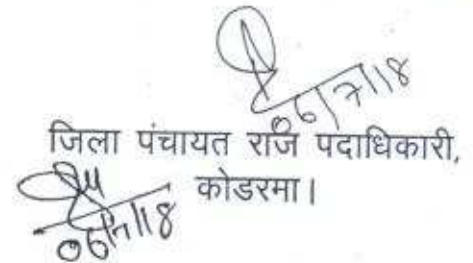 06/7/18
जिला पंचायत राज पदाधिकारी,
कोडरमा।
06/7/18